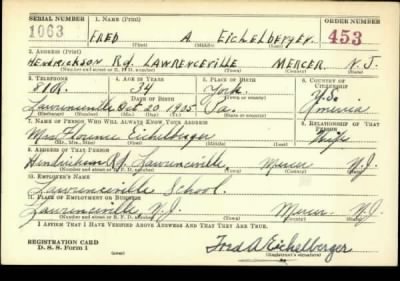 SERIAL NUMBER 1. NAME (Print) ORDER NUMBER
1063 FRED A EICHELBERGER 453
(First) (Middle) (Last)
2. ADDRESS (Print)
HENDRICKSON Rd. LAWRENCEVILLE MERCER N.J.
(Number and street or R. F. D. number) (Town) (County) (State)
3. TELEPHONE 4. AGE IN YEARS 5. PLACE OF BIRTH 6. COUNTRY OF CITIZENSHIP
810R. 34 York U.S.
DATE OF BIRTH (Town or county)
Lawrenceville Oct. 20, 1905 Pa. America
(Exchange) (Number) (Mo.) (Day) (Yr.) (State or country)
7. NAME OF PERSON WHO WILL ALWAYS KNOW YOUR ADDRESS 8. RELATIONSHIP OF THAT PERSON
Mrs. Florence Eichelberger Wife
9. ADDRESS OF THAT PERSON
Hendrickson Rd. Lawrenceville, Mercer N.J.
(Number and street or R. F. D. number) (Town) (County) (State)
10. EMPLOYER'S NAME
Lawrenceville School.
11. PLACE OF EMPLOYMENT OR BUSINESS
Lawrenceville, N.J. Mercer N.J.
(Number and street or R. F. D. number) (Town) (County) (State)
I AFFIRM THAT I HAVE VERIFIED ABOVE ANSWERS AND THAT THEY ARE TRUE.
REGISTRATION CARD
D. S. S. Form 1 Fred A Eichelberger
(Registrant's signature)